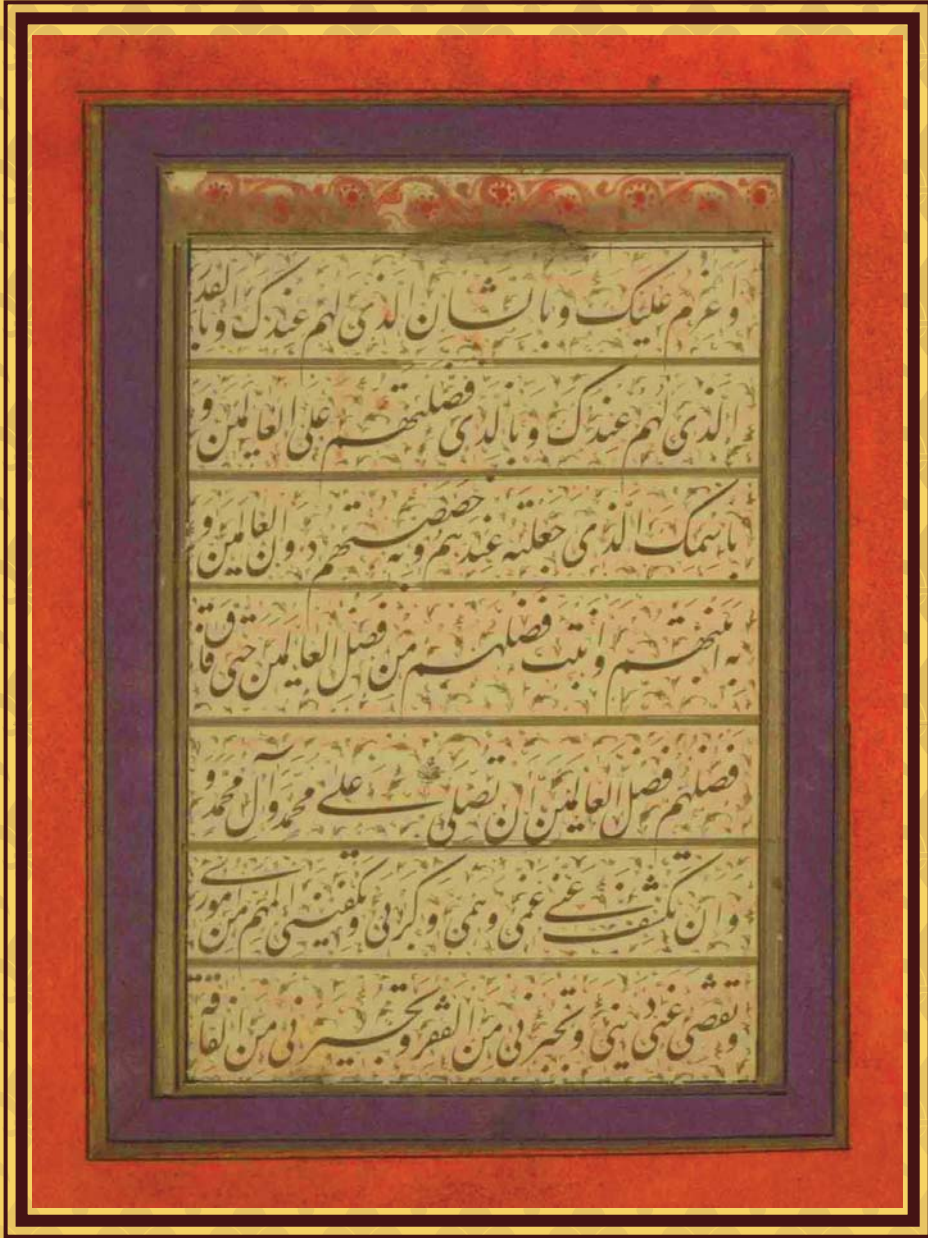 واعزم علیک وبالشان الذی لهم عندک وبالقدر
الذی لهم عندک وبالذی فضلتهم علی العالمین و
باسمک الذی جعلته عندهم وبه خصصتهم دون العالمین و
به ابنتهم وابنت فضلهم من فضل العالمین حتی فاق
فضلهم فضل العالمین ان تصلی علی محمد وآل محمد و
وان تکشف عنی غمی وهمی وکربی وتکفینی المهم من اموری
وتقضی عنی دینی وتجبرنی من الفقر وتجیرنی من الفاقة